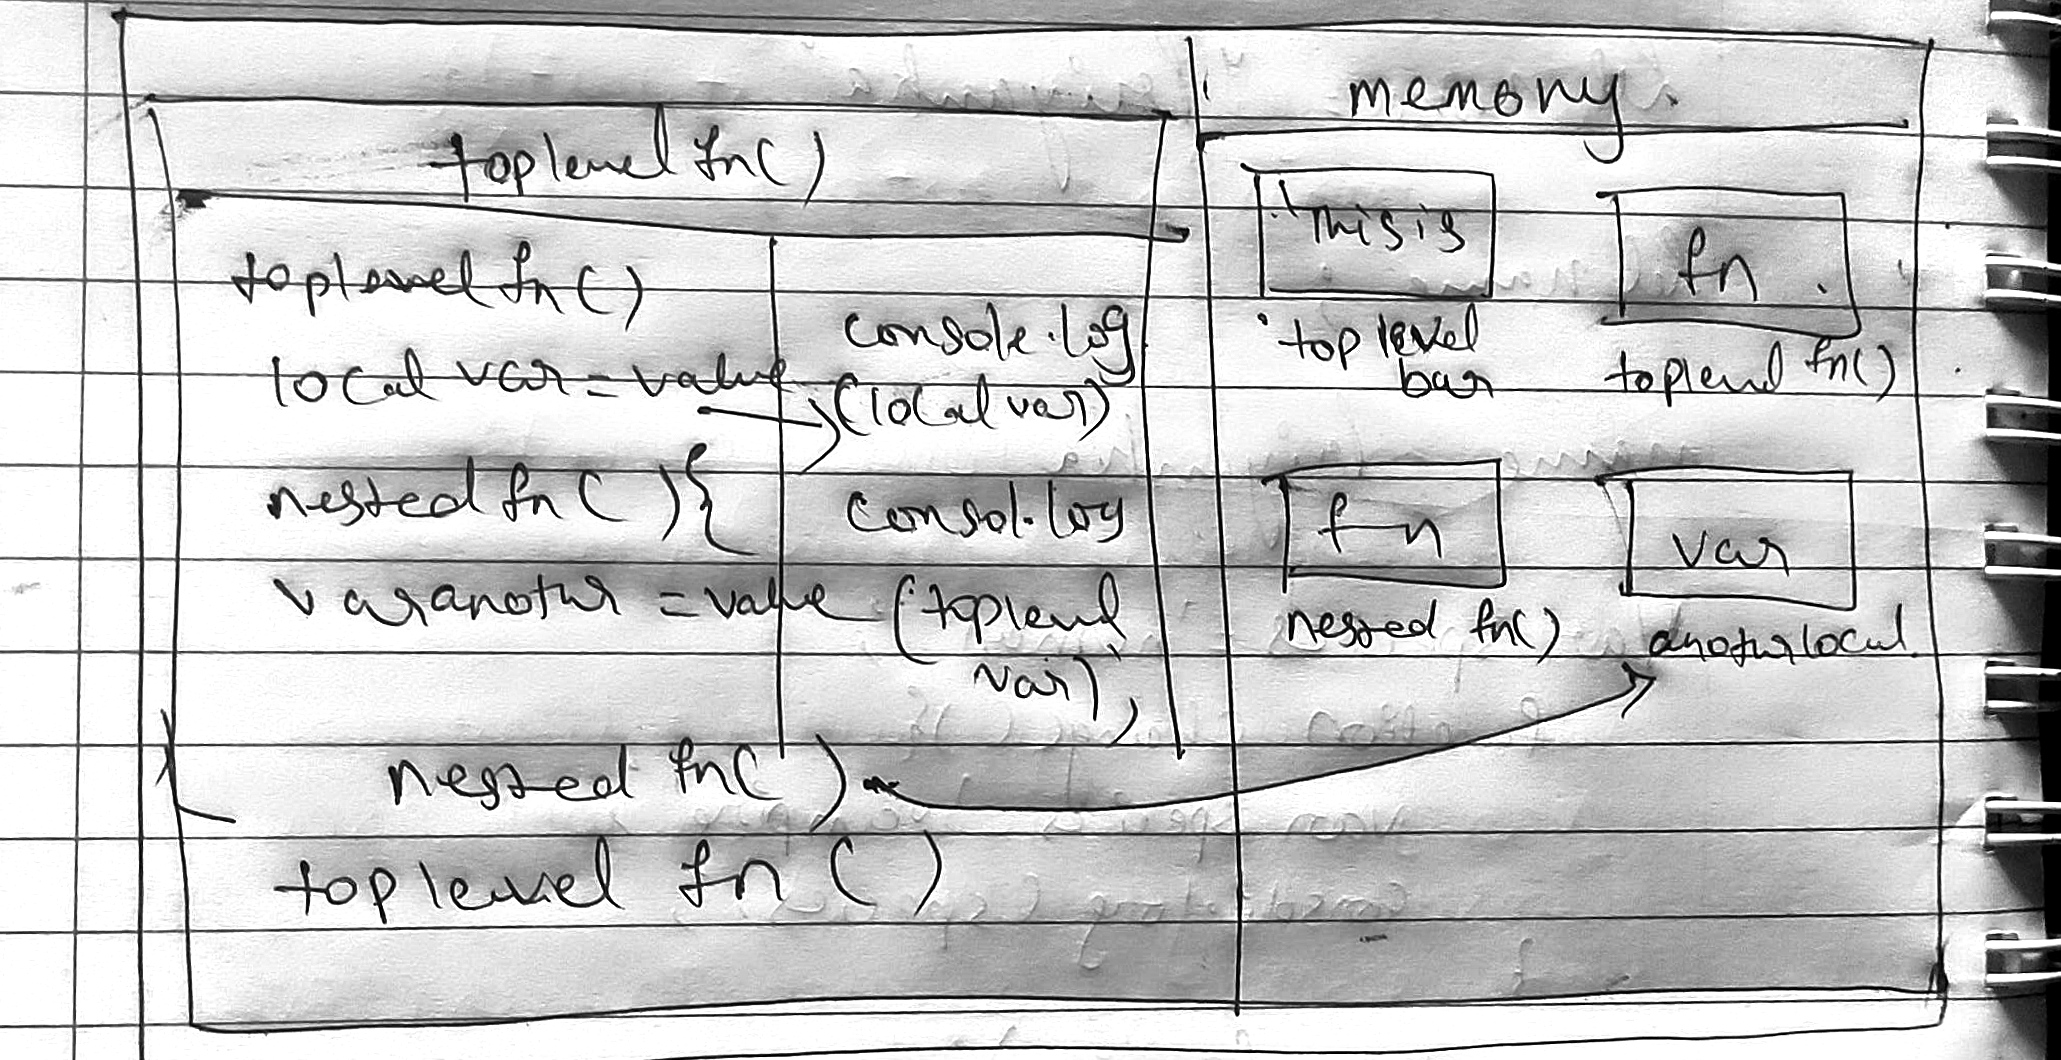 toplevel fn()
toplevel fn()
local var = value
nested fn () {
var anothr = value
console.log
(local var)
consol.log
(toplevel
var);
nested fn()
toplevel fn ()
memory.
'This is
top level
bar
fn
toplevel fn()
fn
nested fn()
var
anothr local